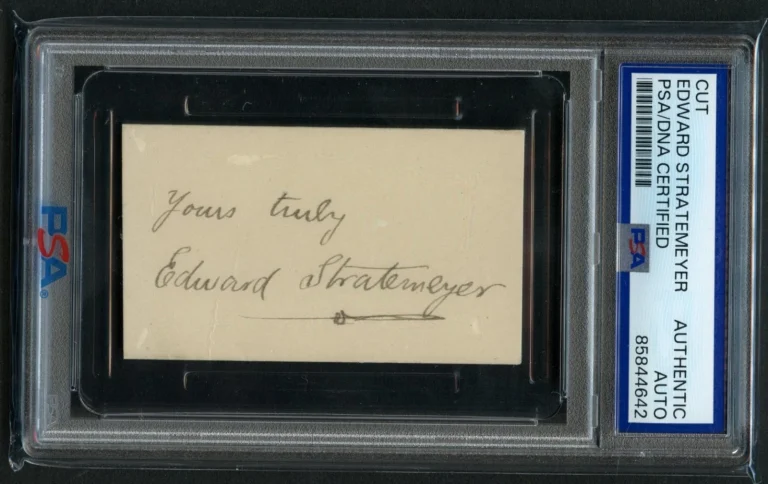 Yours truly
Edward Stratemeyer
PSA
CUT
EDWARD STRATEMEYER
PSA/DNA CERTIFIED
AUTHENTIC
AUTO
85844642
PSA